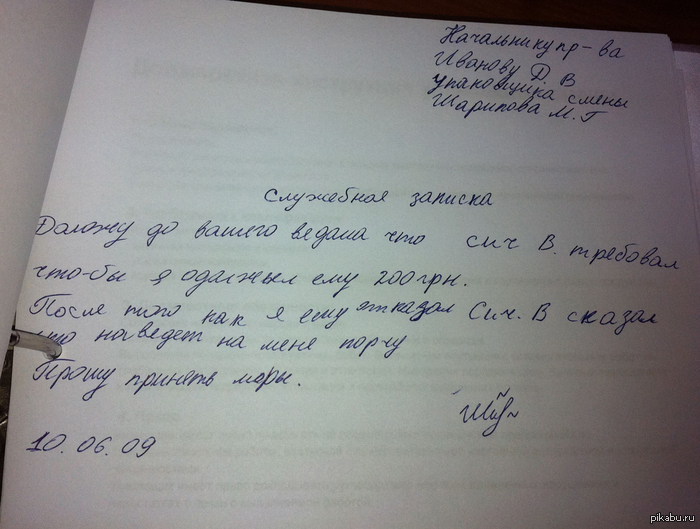 Начальнику пр-ва
Иванову Д. В
Упаковщика смены
Шарипова М. Г
Служебная записка
Доложу до вашего ведома что сич В. требовал
что-бы я одолжыл ему 200 грн.
После того как я ему отказал Сич. В сказал
что наведет на меня порчу
Прошу принять меры.
10.06.09
pikabu.ru